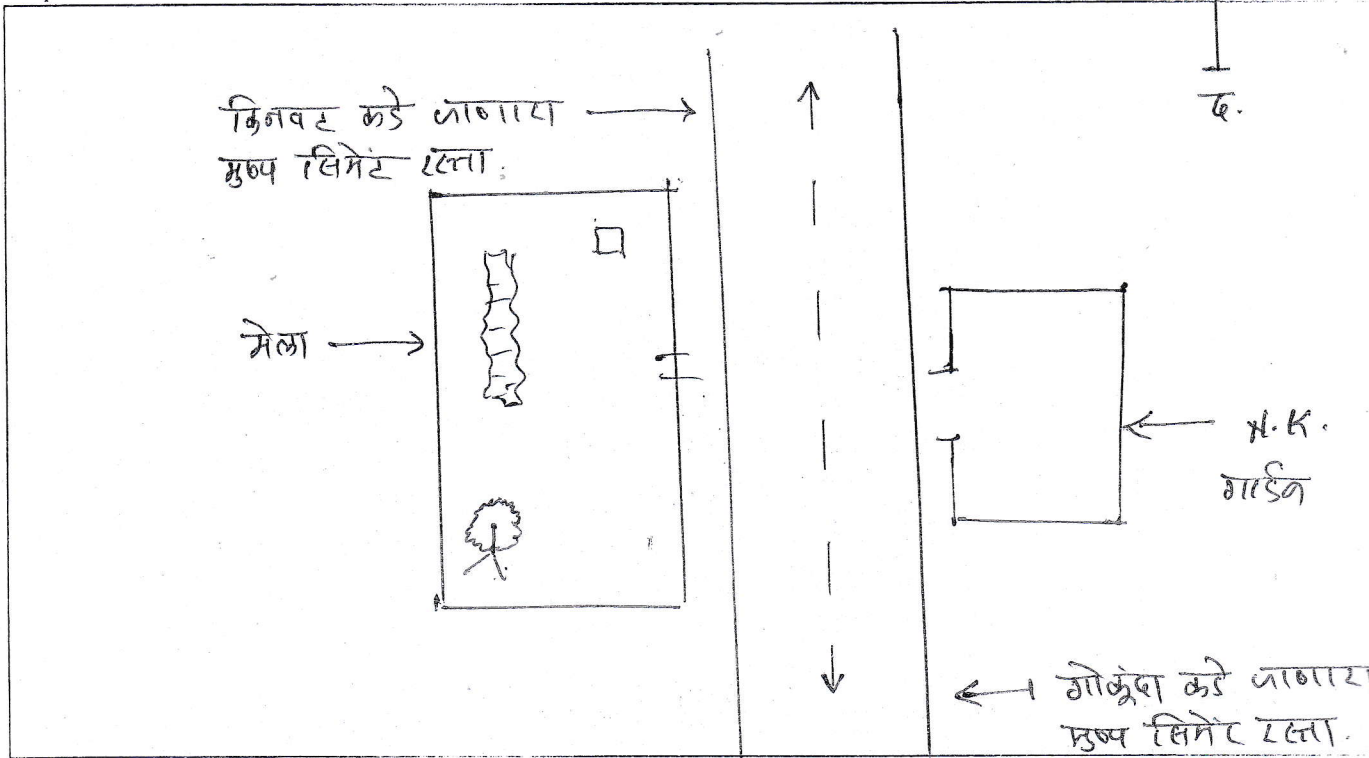 द.
किनवट कडे जाणारा
मुख्य सिमेंट रस्ता.
मेला
N.K.
गार्डन
गोकूंदा कडे जाणारा
मुख्य सिमेंट रस्ता.